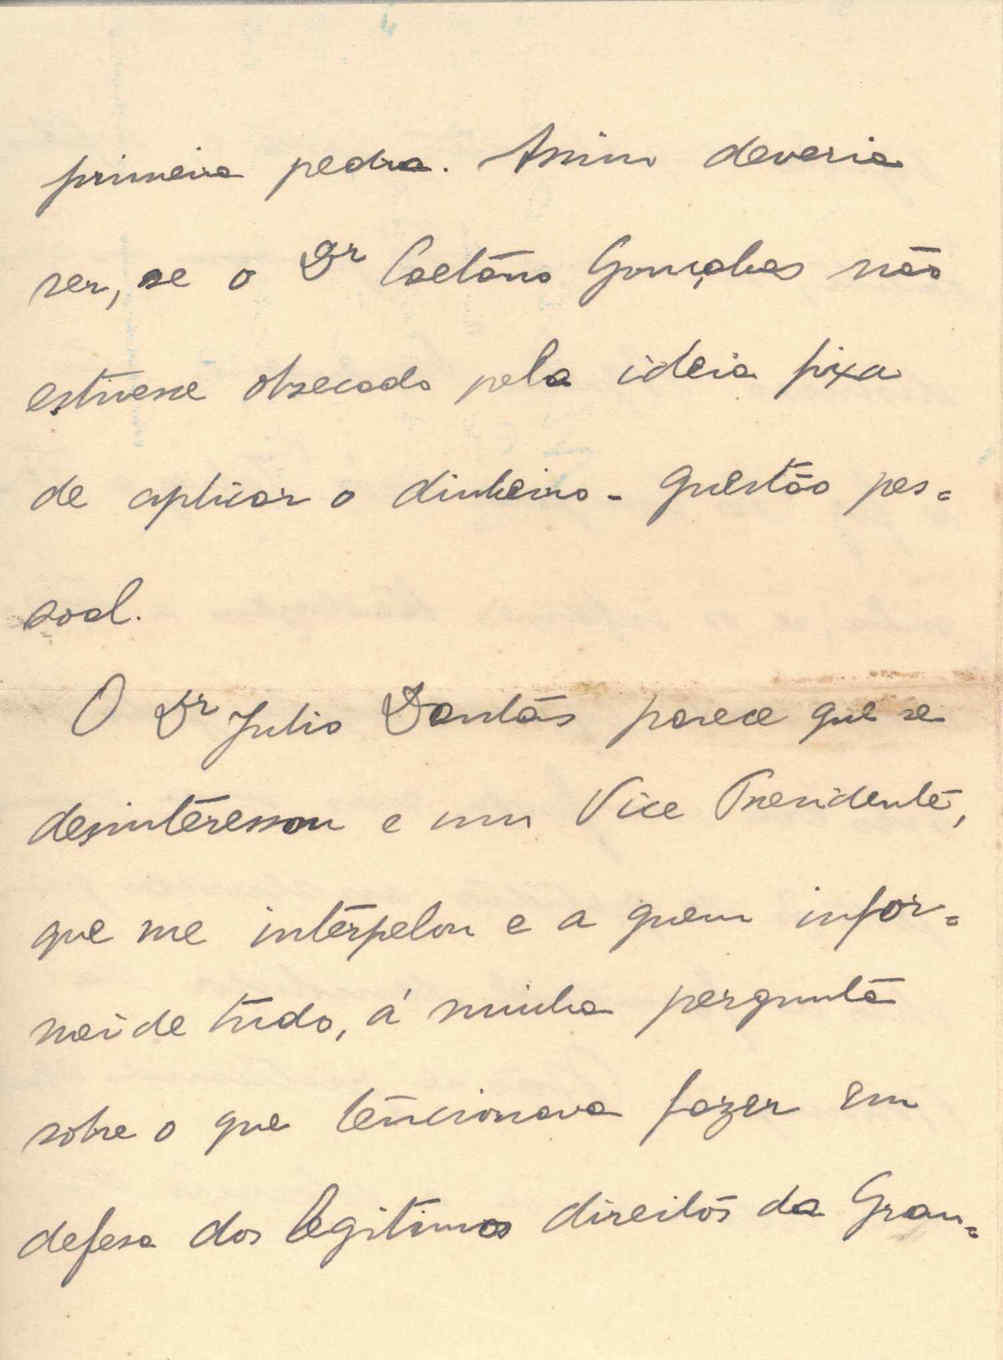 primeira pedra. Assim deveria
ser, se o Dr Caetâno Gonçalves não
estivesse obsecado pela ideia fixa
de aplicar o dinheiro - questão pes=
soal.
O Dr Julio Dantás parece que se
desinteressou e um Vice Presidente,
que me interpelou e a quem infor=
mei de tudo, á minha pergunta
sobre o que tencionava fazer em
defesa dos legitimos direitos da Gran=